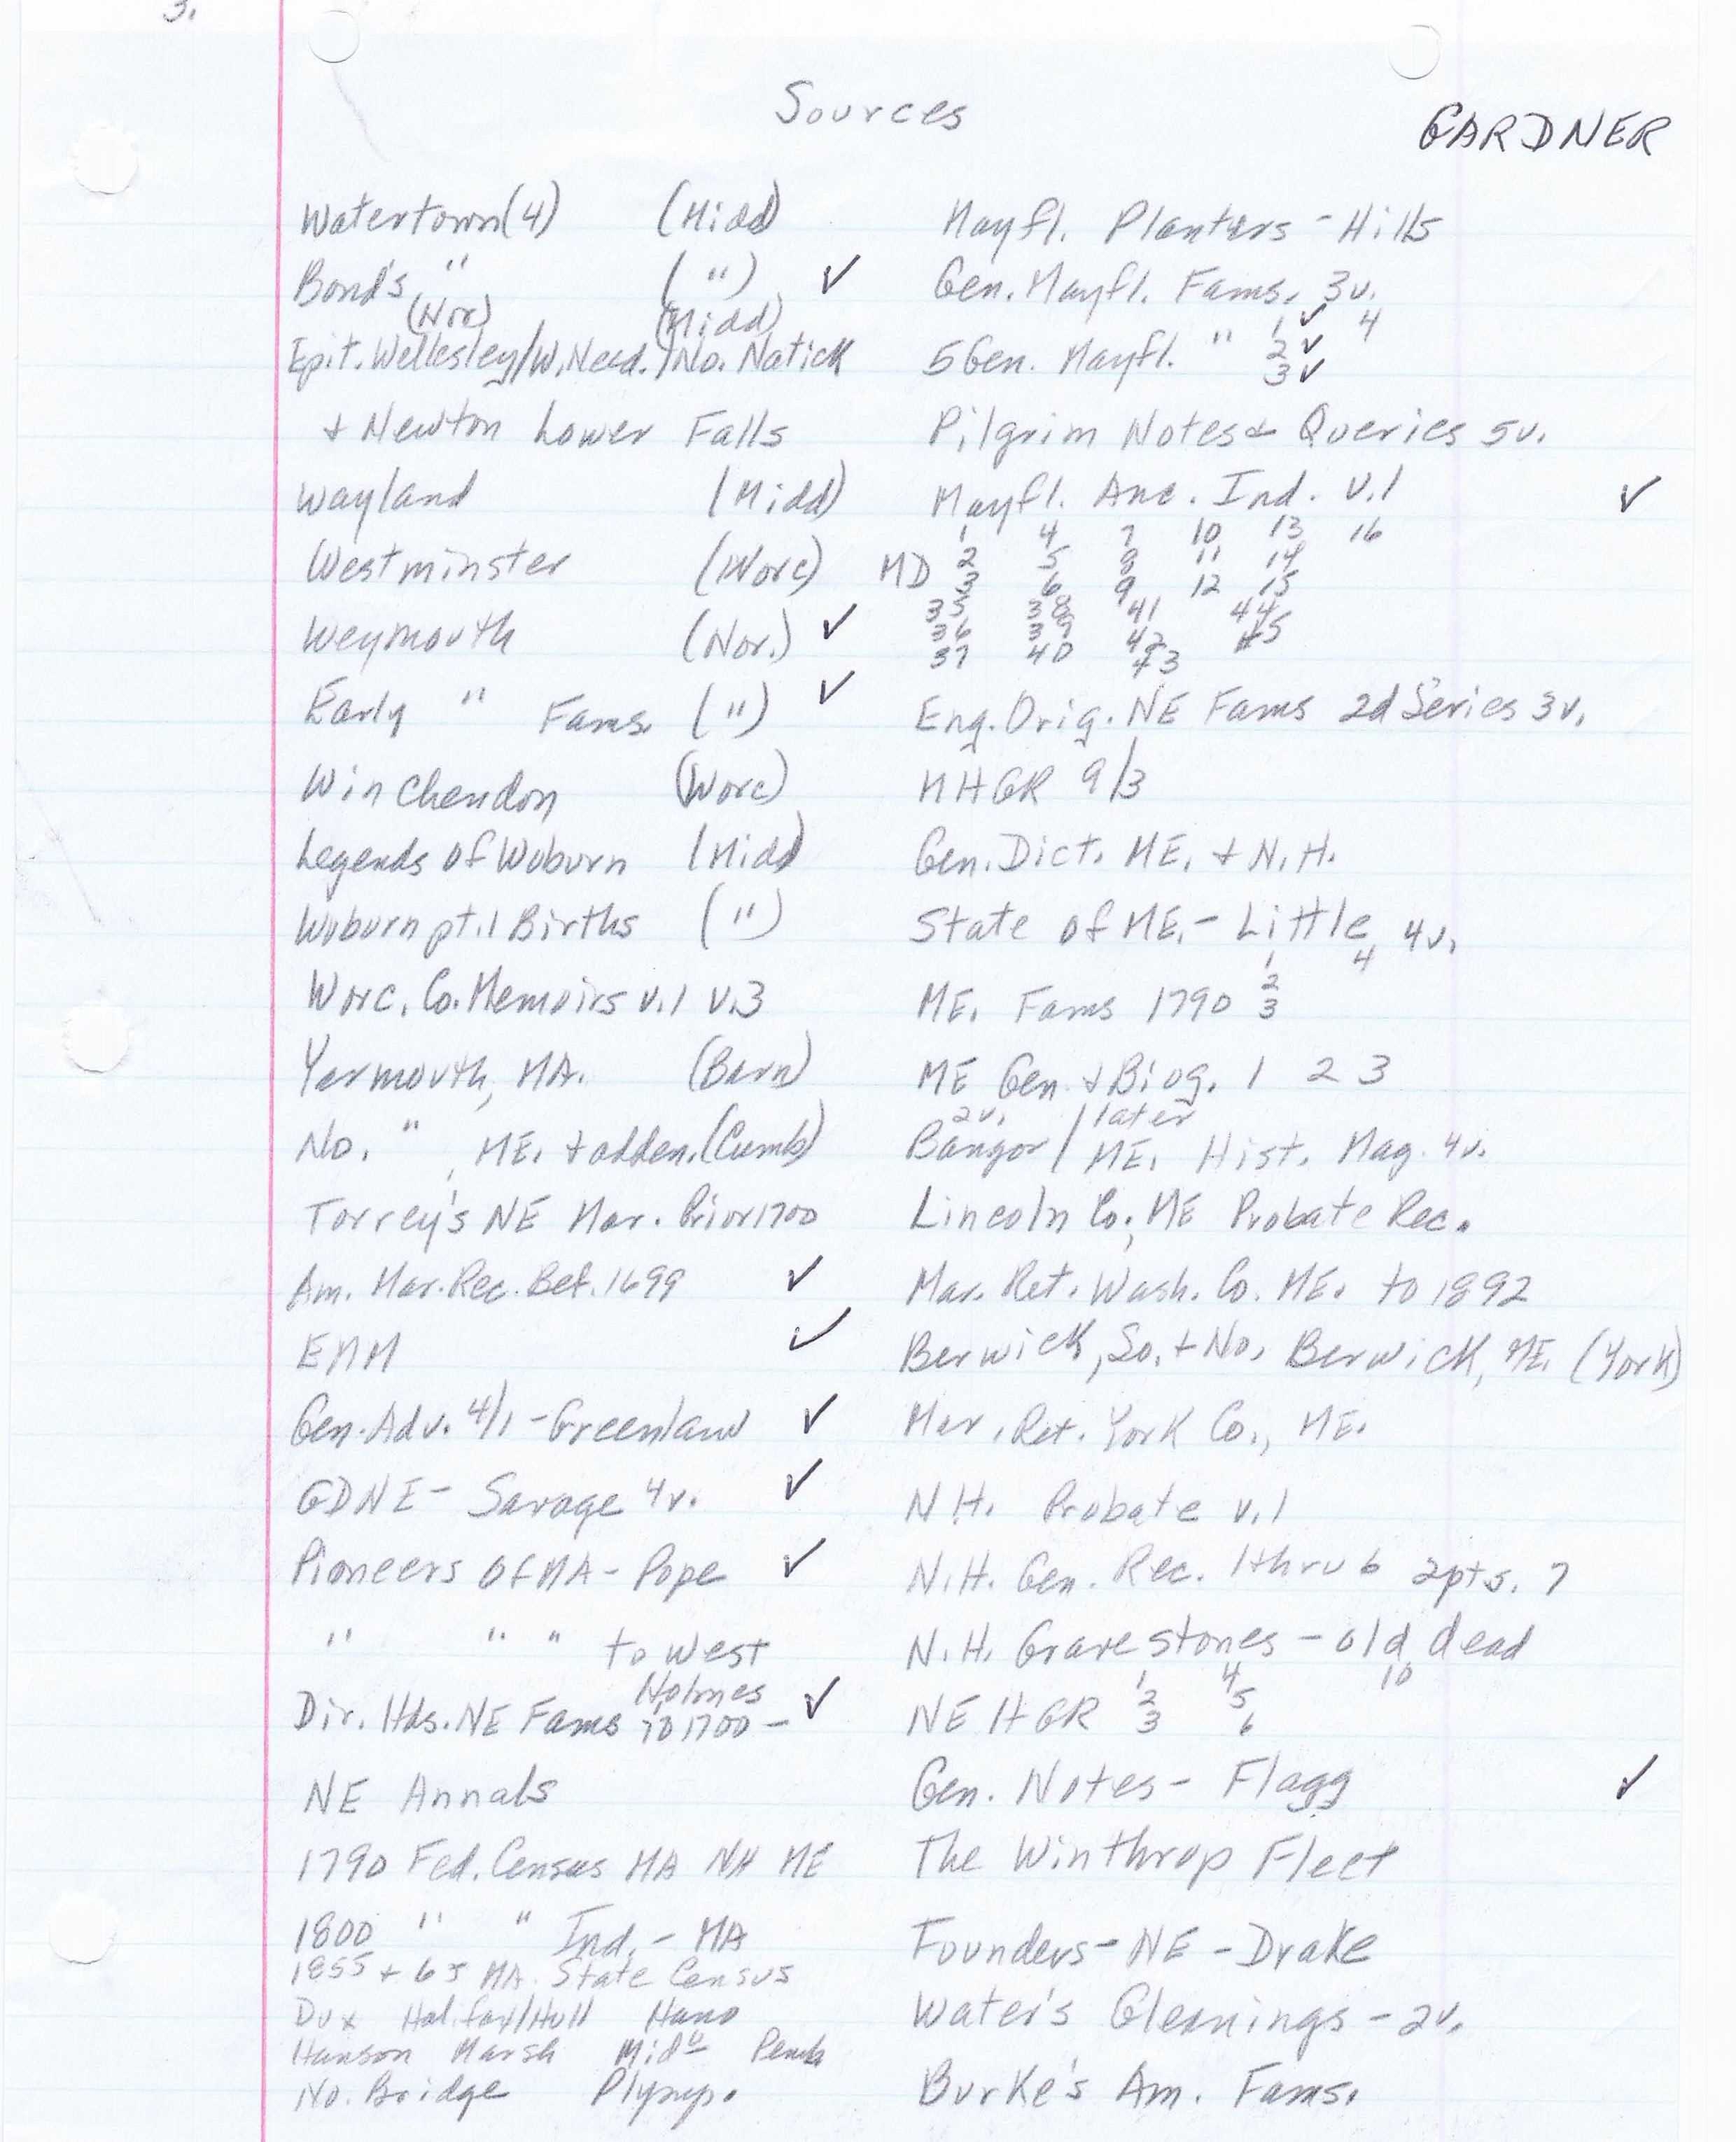 3.
Sources
GARDNER
Watertown(4) (Midd)
Bond's " (") ✓
(Nor) (Midd)
Epit. Wellesley/W. Need./No. Natick
+ Newton Lower Falls
Wayland (Midd)
Westminster (Worc)
Weymouth (Nor.) ✓
Early " Fams. (") ✓
Winchendon (Worc)
Legends of Woburn (Midd)
Woburn pt.1 Births (")
Worc. Co. Memoirs v.1 v.3
Yarmouth, MA. (Barn)
No. ", ME. + adden. (Cumb)
Torrey's NE Mar. Prior 1700
Am. Mar. Rec. Bef. 1699 ✓
EMM ✓
Gen. Adv. 4/1 - Greenlaw ✓
GDNE - Savage 4v. ✓
Pioneers of MA - Pope ✓
" " " to West
Holmes
Dir. Hds. NE Fams to 1700 - ✓
NE Annals
1790 Fed. Census MA NH ME
1800 " " Ind. - MA
1855 + 65 MA. State Census
Dux Halifax/Hull Hano
Hanson Marsh Mid Pemb
No. Bridge Plymp.
Mayfl. Planters - Hills
Gen. Mayfl. Fams. 3v.
1 ✓ 4
5 Gen. Mayfl. " 2 ✓
3 ✓
Pilgrim Notes & Queries 5v.
Mayfl. Anc. Ind. v.1 ✓
1 4 7 10 13 16
MD 2 5 8 11 14
3 6 9 12 15
35 38 41 44
36 39 42 45
37 40 43
Eng. Orig. NE Fams 2d Series 3v.
MHGR 9/3
Gen. Dict. ME. + N.H.
State of ME. - Little 4v.
1 4
2
ME. Fams 1790 3
ME Gen. + Biog. 1 2 3
2v. later
Bangor / ME. Hist. Mag. 4v.
Lincoln Co., ME Probate Rec.
Mar. Ret. Wash. Co. ME. to 1892
Berwick, So. + No. Berwick, ME. (York)
Mar. Ret. York Co., ME.
N.H. Probate v.1
N.H. Gen. Rec. 1 thru 6 2pts. 7
N.H. Gravestones - old dead
1 4 10
NEHGR 2 5
3 6
Gen. Notes - Flagg ✓
The Winthrop Fleet
Founders - NE - Drake
Water's Gleanings - 2v.
Burke's Am. Fams.